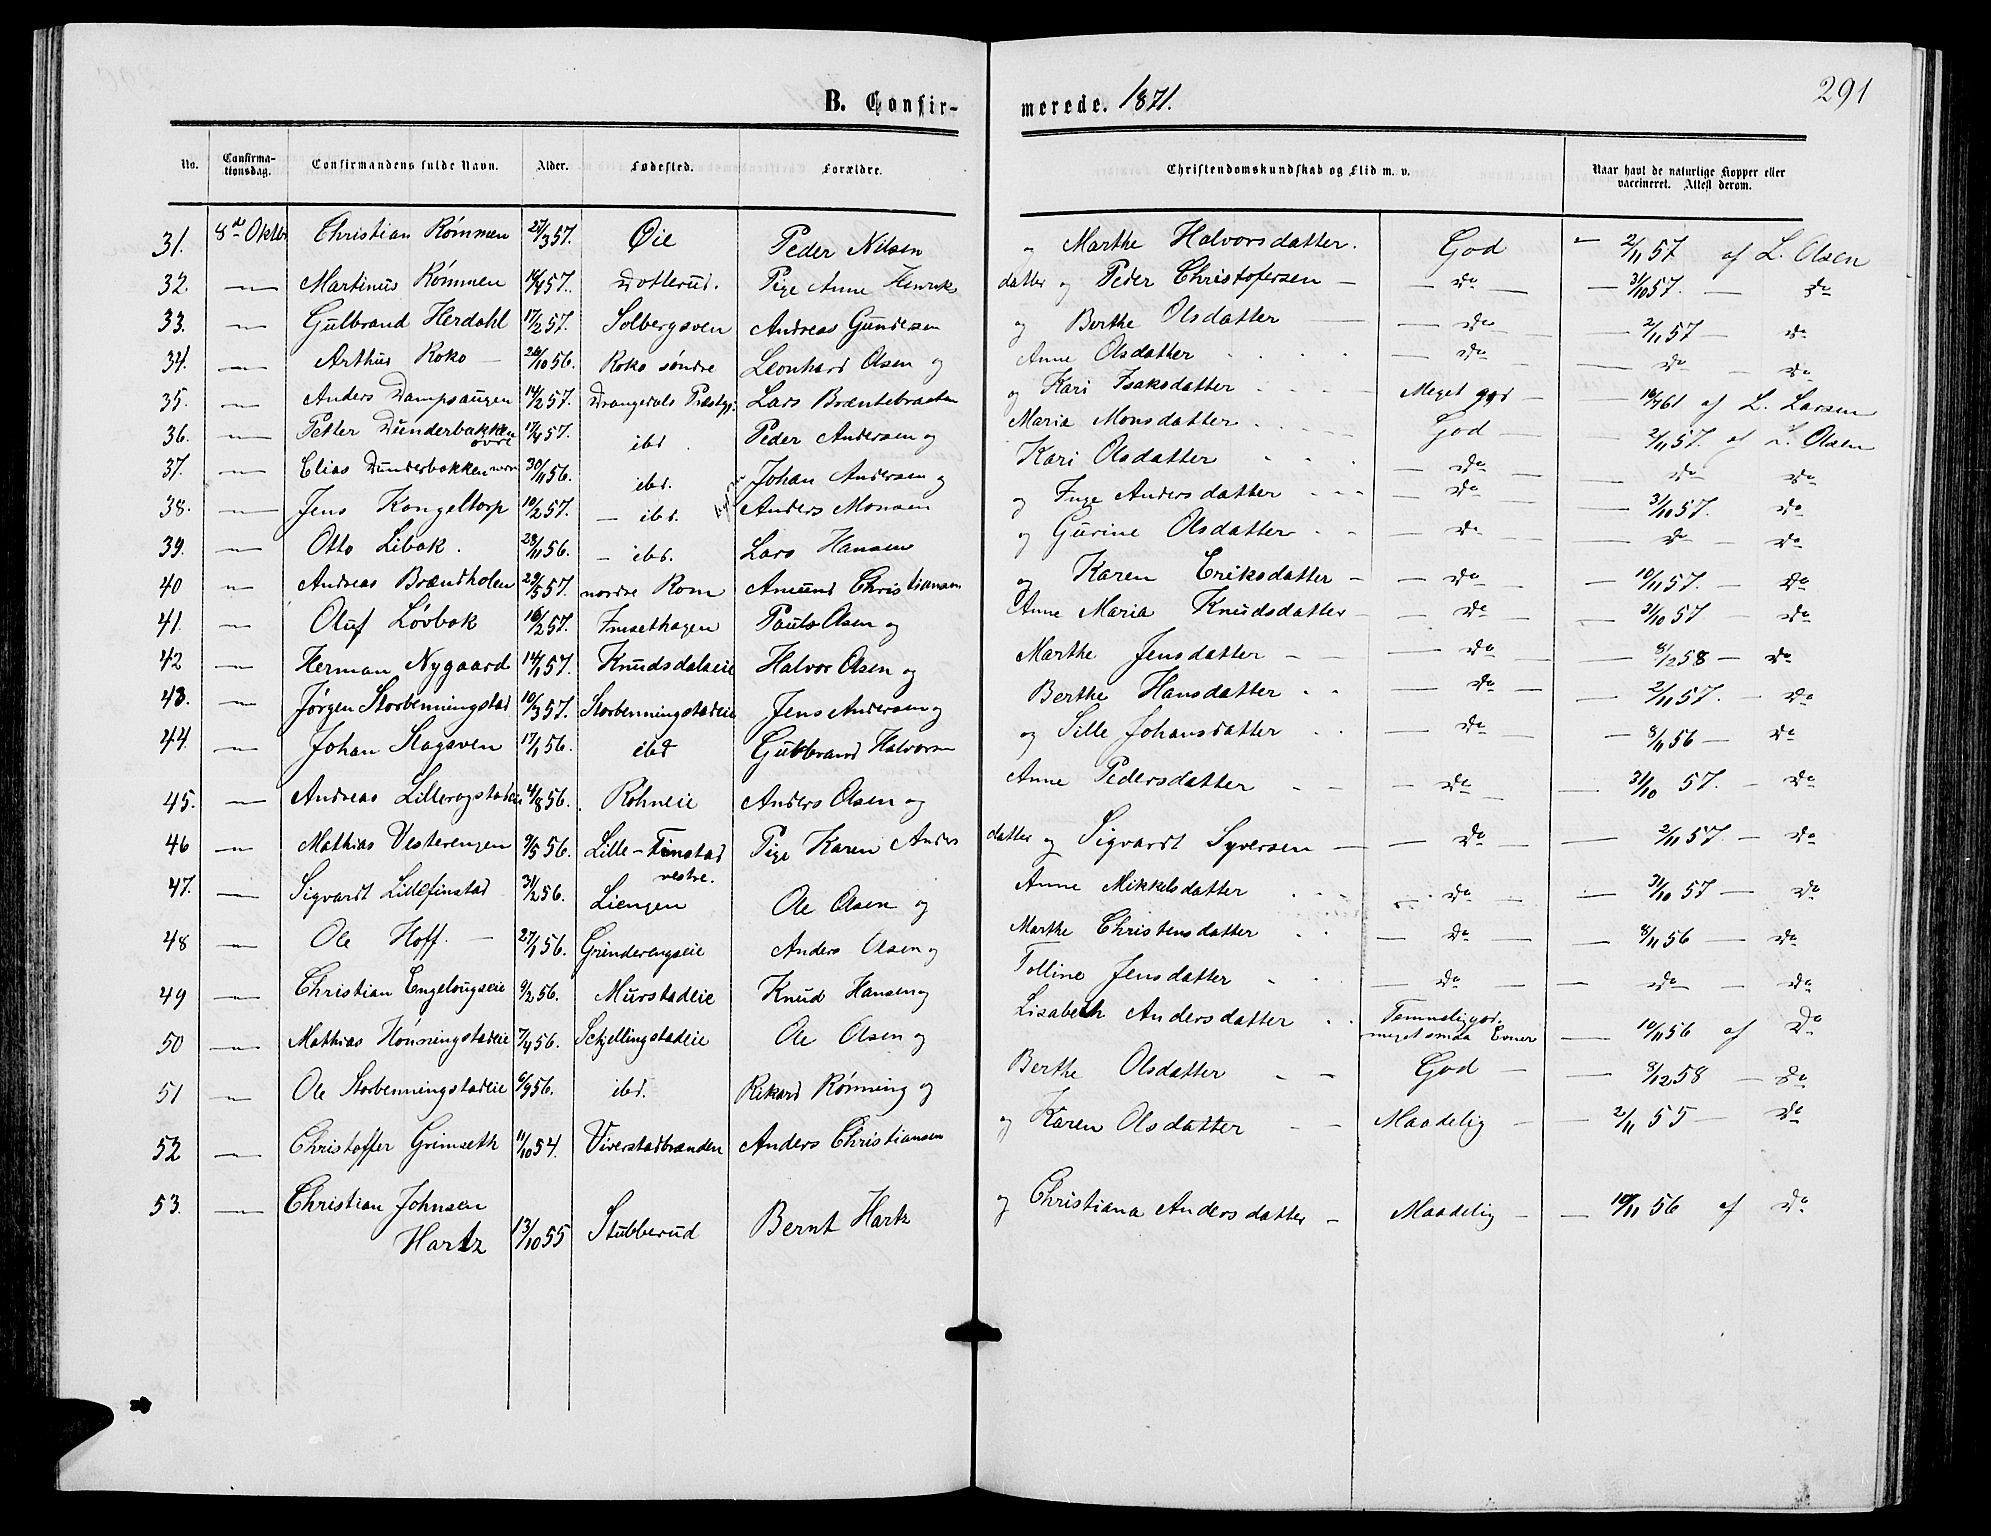 291
B. Confirmerede. 1871.
No. Confirmationsdag. Confirmandens fulde Navn. Alder. Fødested. Forældre. Christendomskundskab og Flid m. v. Naar havt de naturlige Kopper eller vaccineret. Attest derom.
31. 8de Oktbr Christian Rømmen 27/3 57. Øie Peder Nilsen og Marthe Halvorsdatter. God — 2/11 57 af L. Olsen
32. — Martinus Rømmen 57. Dotterud. Pige Anne Henriksdatter og Peder Christofersen — do — 31/10 57. — do
33. — Gulbrand Herdahl 17/2 57. Solbergsven Andreas Gundersen og Berthe Olsdatter — do — 2/11 57 — do
34. — Arthur Roko — 28/10 56. Roko søndre Leonhard Olsen og Anne Olsdatter — do — do — do
35. — Anders Dampsaugen 14/2 57. Drangedals Præstgj. Lars Bræntebraaten og Kari Isaksdatter Meget god — 61 af L. Larsen
36. — Petter Dunderbakken øvre 17/4 57. ibd. Peder Andersen og Maria Monsdatter God — 2/11 57. af L. Olsen
37. — Elias Dunderbakken 30/11 56. ibd. Johan Andersen og Kari Olsdatter — do — do do
38. — Jens Kongeltorp 10/2 57. — ibd. Anders Monsen og Inge Andersdatter — do — 31/10 57. do
39. — Otto Libak. 28/11 56. — ibd. Lars Hansen og Gurine Olsdatter — do — do — do
40 — Andreas Brændholen 29/5 57. nordre Rom Amund Christiansen og Karen Eriksdatter — do — 10/11 57. — do
41. — Oluf Løvbak 16/2 57. Imsethagen Pauls Olsen og Anne Maria Knudsdatter — do — 31/10 57 — do
42 — Herman Nygaard 57. Knudsdalseie Halvor Olsen og Marthe Jensdatter — do — 8/12 58 — do
43. — Jørgen Storbenningstad 10/3 57. Storbenningstadeie Jens Andersen og Berthe Hansdatter — do — 2/11 57. — do
44. — Johan Slagsven 17/11 56. ibd Gulbrand Halvorsen og Sille Johansdatter — do — 8/11 56 — do
45. — Andreas Lillerogstadeie 4/8 56. Rohneie Anders Olsen og Anne Pedersdatter — do — 31/10 57. — do
46 — Mathias Vesterengen 9/5 56. Lille-Finstad vestre. Pige Karen Andersdatter og Sigvardt Syversen — do — 2/11 57 — do
47. — Sigvardt Lillefinstad 31/12 56. Liengen Ole Olsen og Anne Mikkelsdatter — do — 31/10 57 — do
48 — Ole Hoff. — 27/1 56. Grinderengseie Anders Olsen og Marthe Christensdatter — do — 8/11 56 — do
49 — Christian Engelougseie 9/2 56. Murstadeie Knud Hansen og Tolline Jensdatter — do — do — do
50 — Mathias Hønningstadeie 7/4 56. Schjellingstadeie Ole Olsen og Lisabeth Andersdatter Temmelig god, meget smaa Evner — 10/11 56 af do
51 — Ole Storbenningstadeie 6/9 56. ibd. Rikard Rønning og Berthe Olsdatter God — 8/12 58 — do
52 — Christoffer Grimseth 11/10 54. Viverstadbrænden Anders Christiansen og Karen Olsdatter Maadelig — 2/11 55 — do
53. — Christian Johnsen Hartz 13/10 55 Stubberud Bernt Hartz og Christiana Andersdatter — Maadelig — 10/11 56 af do